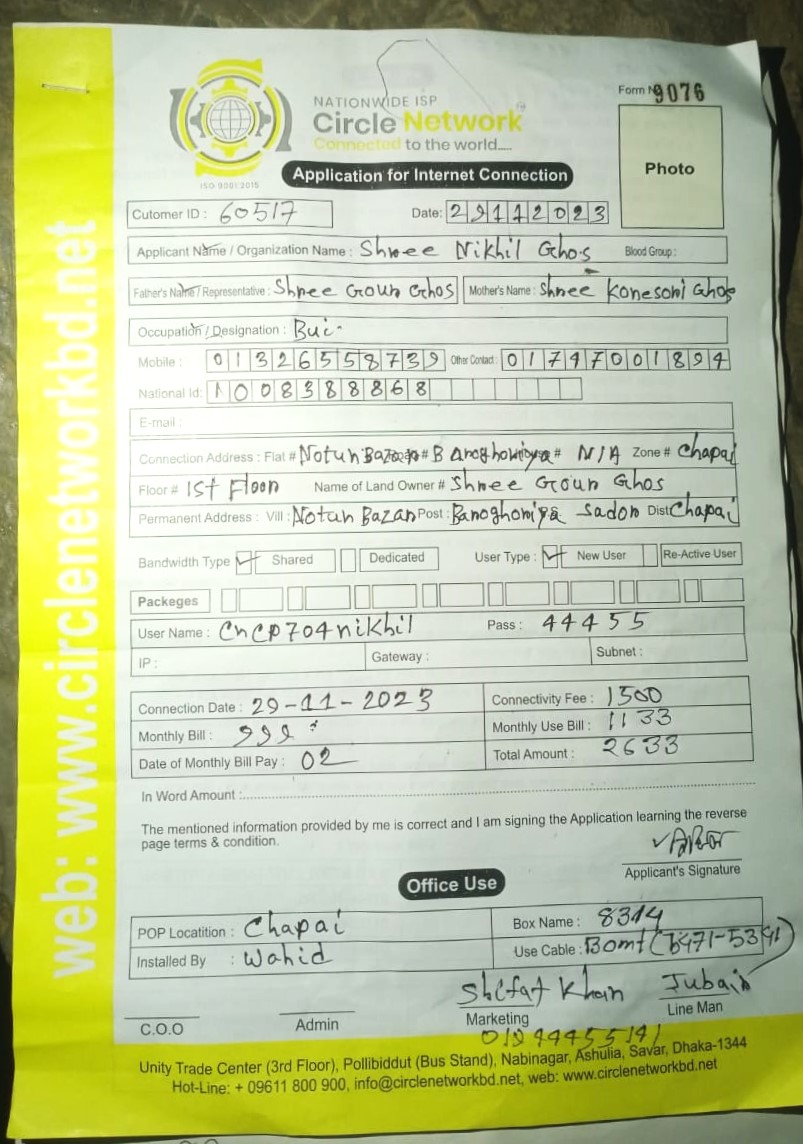 NATIONWIDE ISP
Circle Network
Connected to the world.....
ISO 9001:2015
Form N 9076
Photo
Application for Internet Connection
Cutomer ID : 60517 Date: 29112023
Applicant Name / Organization Name : Shree Nikhil Ghos Blood Group :
Father's Name / Representative : Shree Goun Ghos Mother's Name : Shree Konesoni Ghos
Occupation / Designation : Bui-
Mobile : 01326558739 Other Contact : 01747001894
National Id: 1008388868
E-mail :
Connection Address : Flat # Notun Bazar # Banoghoniya # N/A Zone # Chapai
Floor # 1st Floor Name of Land Owner # Shree Goun Ghos
Permanent Address : Vill : Notun Bazar Post : Banoghoniya Sadon Dist Chapai
Bandwidth Type Shared Dedicated User Type : New User Re-Active User
Packeges
User Name : cncp704nikhil Pass : 44455
IP : Gateway : Subnet :
Connection Date : 29-11-2023 Connectivity Fee : 1500
Monthly Bill : 999 Monthly Use Bill : 1133
Date of Monthly Bill Pay : 02 Total Amount : 2633
In Word Amount :
The mentioned information provided by me is correct and I am signing the Application learning the reverse
page terms & condition.
Applicant's Signature
Office Use
POP Locatition : Chapai Box Name : 8314
Installed By : Wahid Use Cable : 80mt (5471-5391)
Shifat Khan Jubair
C.O.O Admin Marketing Line Man
01944455141
Unity Trade Center (3rd Floor), Pollibiddut (Bus Stand), Nabinagar, Ashulia, Savar, Dhaka-1344
Hot-Line: + 09611 800 900, info@circlenetworkbd.net, web: www.circlenetworkbd.net
web: www.circlenetworkbd.net